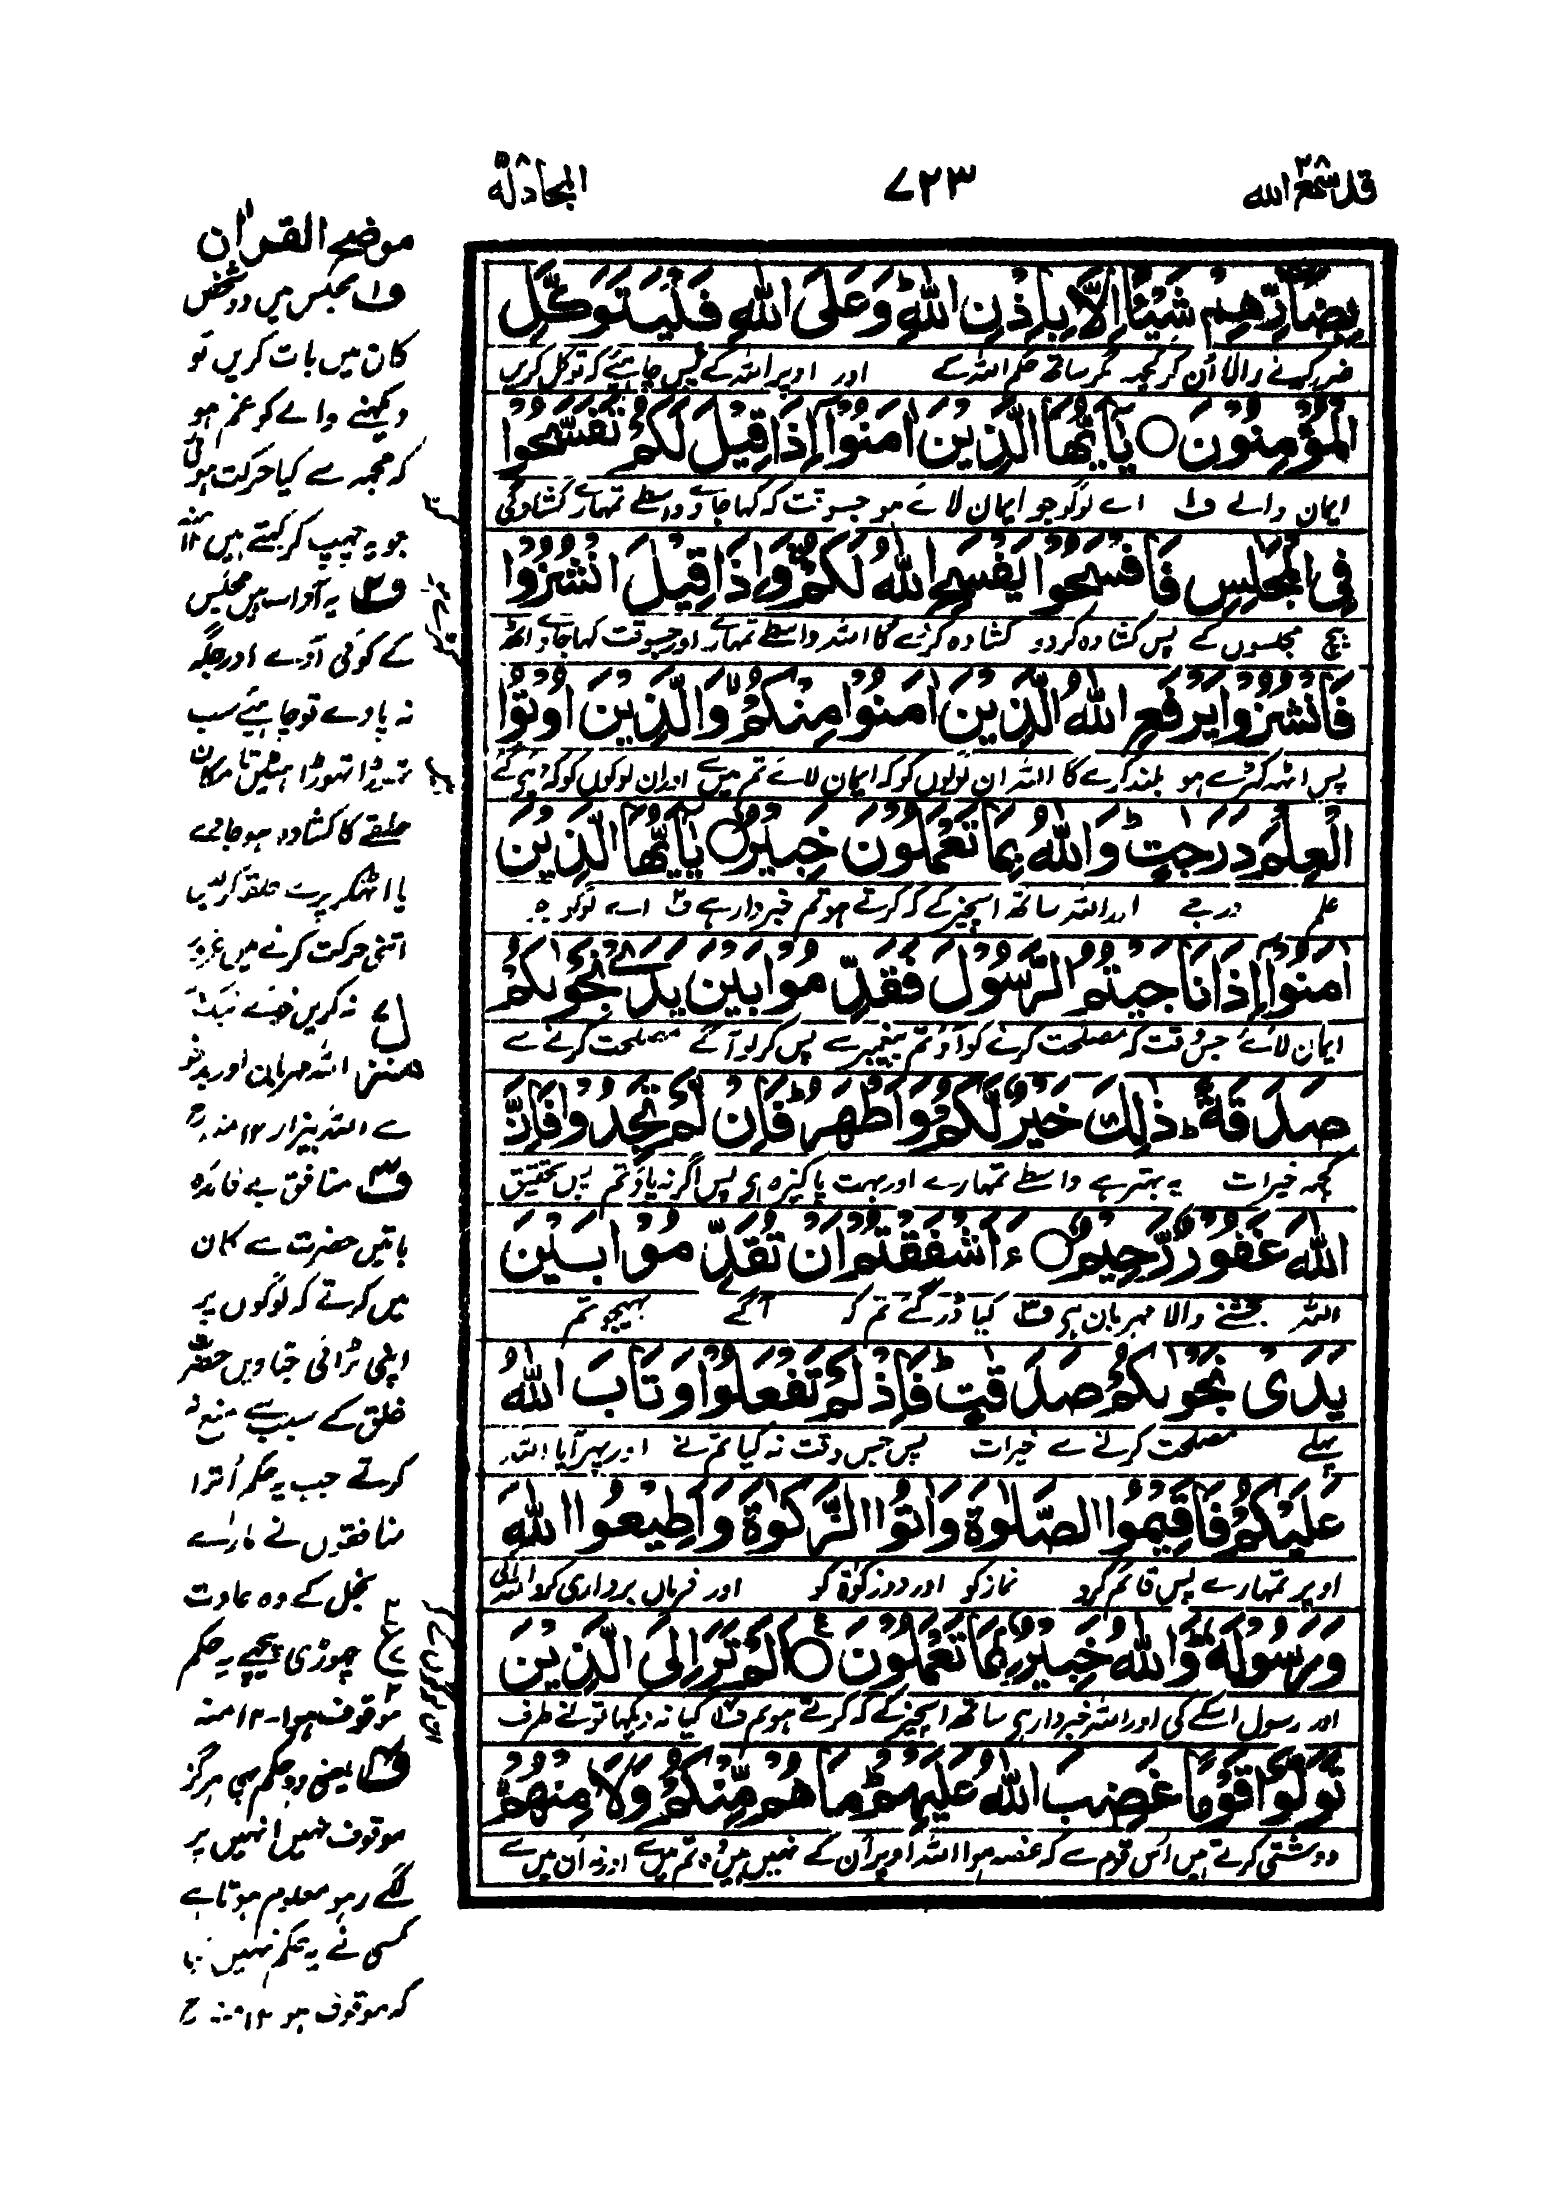 قد سمع الله ٢٨
٧٢٣
المجادلة ٥٨
بِضَآرِّهِمْ شَيْئًا اِلَّا بِاِذْنِ اللّٰهِ ؕ وَعَلَى اللّٰهِ فَلْيَتَوَكَّلِ
ضرر کرنے والا اُن کو کچھہ مگر ساتھ حکم اللہ کے اور اوپر اللہ کے پس چاہیئے کہ توکل کریں
الْمُؤْمِنُوْنَ ○ يٰٓاَيُّهَا الَّذِيْنَ اٰمَنُوْٓا اِذَا قِيْلَ لَكُمْ تَفَسَّحُوْا
ایمان والے ف۱ اے لوگو جو ایمان لائے ہو جسوقت کہ کہا جاوے واسطے تمہارے کشادگی
فِى الْمَجٰلِسِ فَافْسَحُوْا يَفْسَحِ اللّٰهُ لَكُمْ ۚ وَاِذَا قِيْلَ انْشُزُوْا
بیچ مجلسوں کے پس کشادہ کردو کشادہ کریگا اللہ واسطے تمہارے اور جسوقت کہا جاوے اٹھو
فَانْشُزُوْا يَرْفَعِ اللّٰهُ الَّذِيْنَ اٰمَنُوْا مِنْكُمْ ۙ وَالَّذِيْنَ اُوْتُوا
پس اٹہہ کھڑے ہو بلند کرے گا اللہ ان لوگوں کو کہ ایمان لائے تم میں سے اور ان لوگوں کو کہ دیے گئے
الْعِلْمَ دَرَجٰتٍ ؕ وَاللّٰهُ بِمَا تَعْمَلُوْنَ خَبِيْرٌ ○ يٰٓاَيُّهَا الَّذِيْنَ
علم درجے اور اللہ ساتھ اسچیز کے کہ کرتے ہو تم خبردار ہے ف۲ اے لوگو جو
اٰمَنُوْٓا اِذَا نَاجَيْتُمُ الرَّسُوْلَ فَقَدِّمُوْا بَيْنَ يَدَىْ نَجْوٰىكُمْ
ایمان لائے جس وقت کہ مصلحت کرنے کو آؤ تم پیغمبر سے پس کر لو آگے مصلحت کرنے سے
صَدَقَةً ؕ ذٰلِكَ خَيْرٌ لَّكُمْ وَاَطْهَرُ ؕ فَاِنْ لَّمْ تَجِدُوْا فَاِنَّ
کچھہ خیرات یہ بہتر ہے واسطے تمہارے اور بہت پاکیزہ ہی پس اگر نہ پاؤ تم پس تحقیق
اللّٰهَ غَفُوْرٌ رَّحِيْمٌ ○ ءَاَشْفَقْتُمْ اَنْ تُقَدِّمُوْا بَيْنَ
اللہ بخشنے والا مہربان ہی ف۳ کیا ڈر گئے تم کہ آگے بھیجو تم
يَدَىْ نَجْوٰىكُمْ صَدَقٰتٍ ؕ فَاِذْ لَمْ تَفْعَلُوْا وَتَابَ اللّٰهُ
پہلے مصلحت کرنے سے خیرات پس جس وقت نہ کیا تم نے اور پھر آیا اللہ
عَلَيْكُمْ فَاَقِيْمُوا الصَّلٰوةَ وَاٰتُوا الزَّكٰوةَ وَاَطِيْعُوا اللّٰهَ
اوپر تمہارے پس قائم کرو نماز کو اور دو زکوٰۃ کو اور فرماں برداری کرو اللہ کی
وَرَسُوْلَهٗ ؕ وَاللّٰهُ خَبِيْرٌۢ بِمَا تَعْمَلُوْنَ ○ اَلَمْ تَرَ اِلَى الَّذِيْنَ
اور رسول اسکے کی اور اللہ خبردار ہی ساتھ اسچیز کے کہ کرتے ہو تم ف۴ کیا نہ دیکہا تونے طرف
تَوَلَّوْا قَوْمًا غَضِبَ اللّٰهُ عَلَيْهِمْ ؕ مَا هُمْ مِّنْكُمْ وَلَا مِنْهُمْ ۙ
دوستی کرتے ہیں اُس قوم سے کہ غصہ ہوا اللہ اوپر اُن کے نہیں ہیں وہ تم میں سے اور نہ اُن میں سے
موضح القراٰن
ف۱ مجلس میں دو شخص
کان میں بات کریں تو
دیکہنے والے کو غم ہو
کہ مجہہ سے کیا حرکت ہوئی
جو یہ چھپ کر کہتے ہیں ۱۲ منہ
ف۲ یہ آداب ہیں مجلس
کے کوئی آوے اور جگہ
نہ پاوے تو چاہیئے سب
تھوڑا تھوڑا ہٹیں تا مکان
حلقے کا کشادہ ہو جاوے
یا اٹھکر پرے حلقہ کر لیں
اتنی حرکت کرنے میں غرور
نہ کریں خوئے نیک
اللہ مہربان اور بد خو
سے اللہ بیزار ۱۲ منہ
ف۳ منافق بے فائدہ
باتیں حضرت سے کان
میں کرتے کہ لوگوں پر
اپنی بڑائی جتاویں حضرت
خلق کے سبب سے منع نہ
کرتے جب یہ حکم اُترا
منافقوں نے مارے
بخل کے وہ عادت
چھوڑی پیچھے یہ حکم
موقوف ہوا ۱۲ منہ
ف۴ یعنی وہ حکم سبھی ہرگز
موقوف نہیں انہیں پر
لگے رہو معلوم ہوتا ہے
کسی نے یہ حکم نہیں کیا
کہ موقوف ہو ۱۲ منہ ح